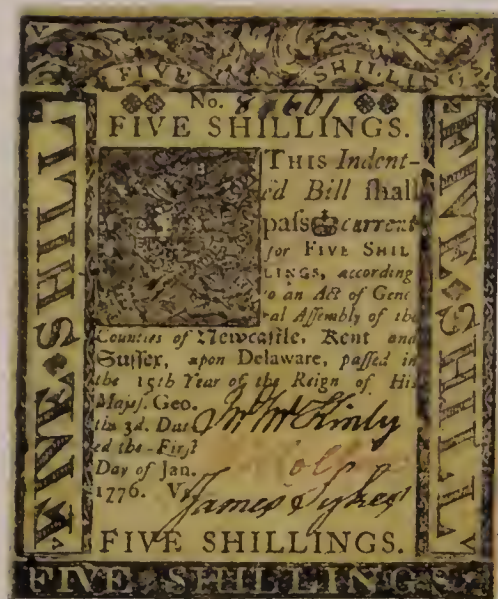 FIVE SHILLING
No. 80601
FIVE SHILLINGS.
THIS Indent-
ed Bill ſhall
paſs current
for FIVE SHIL
LINGS, according
to an Act of Gene
ral Aſſembly of the
Counties of Newcaſtle, Kent and
Suſſex, upon Delaware, paſſed in
the 15th Year of the Reign of His
Majeſ. Geo.
the 3d. Dat-
ed the Firſt
Day of Jan.
1776. V
Jn McKinly
James Sykes
FIVE SHILLINGS.
FIVE SHILLINGS
FIVE SHILL
FIVE SHILL